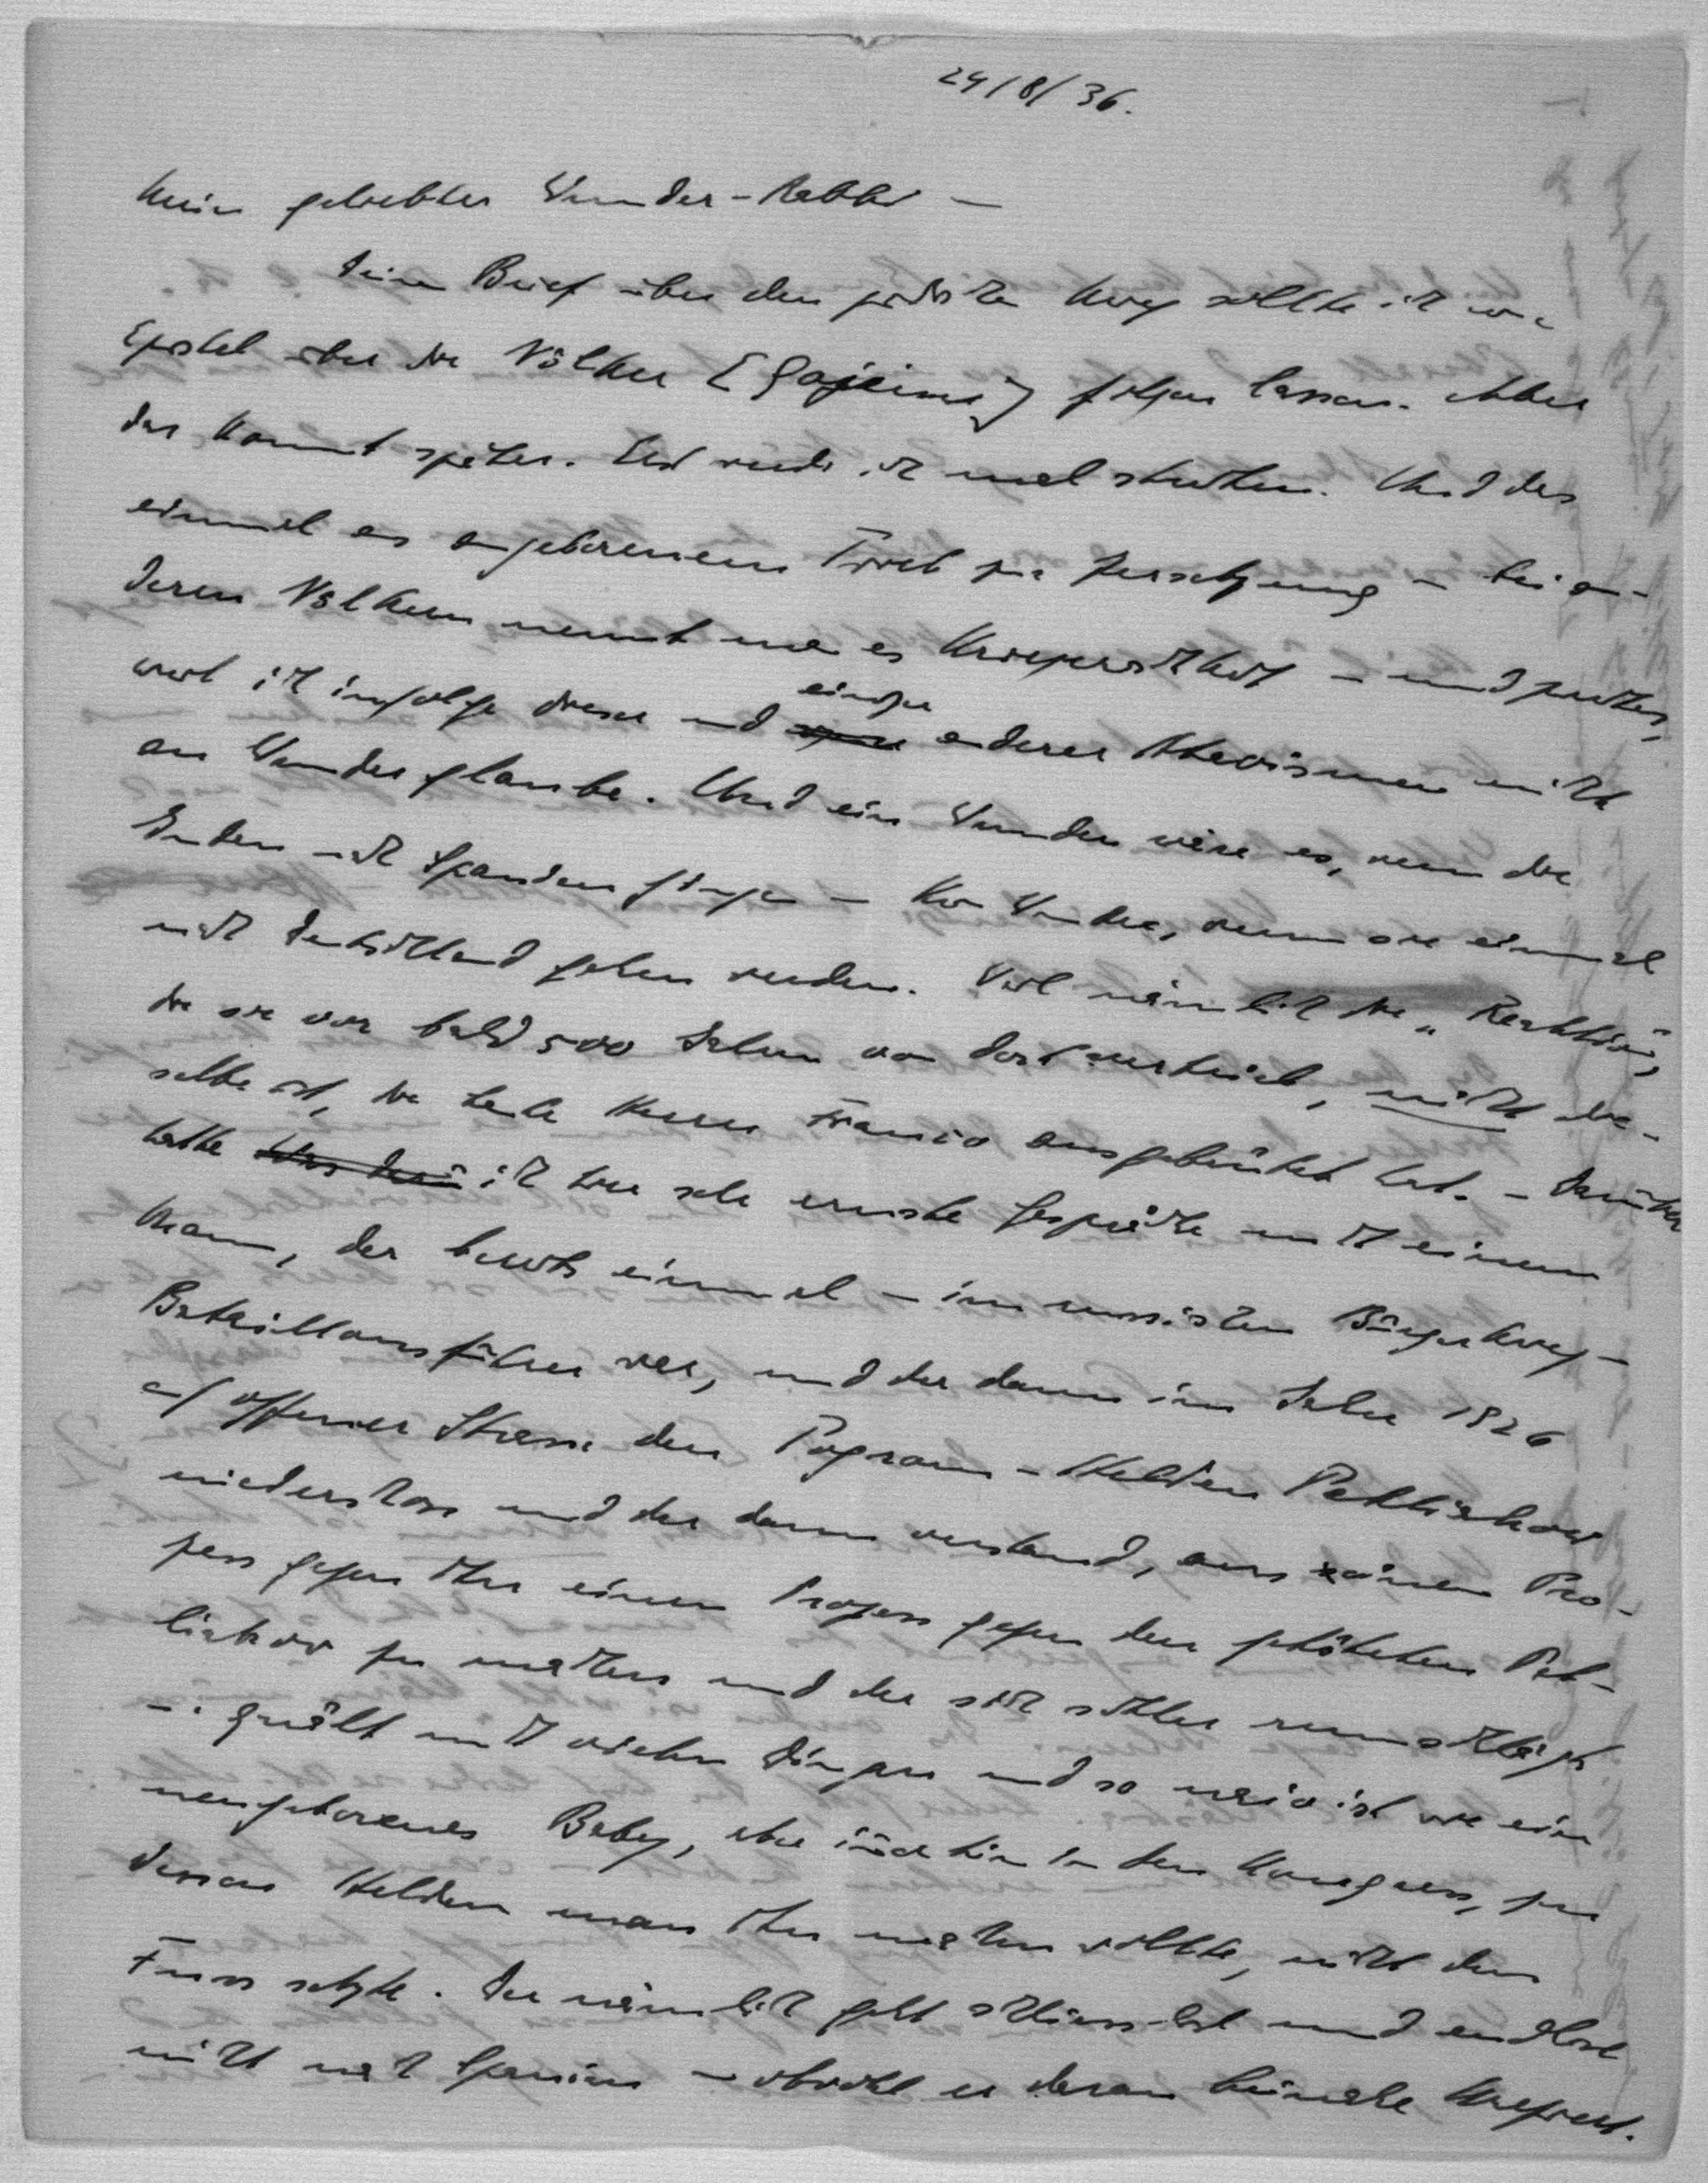 24/8/36.
Mein geliebter Wunder-Rabbi —
Deinem Brief über den jüdischen Krieg sollte ich eine
Epistel über die Völker [Gojeims] folgen lassen. Aber
das kommt später. Erst werde ich mal streiten. Und das
einmal aus angeborenem Trieb zur Zersetzung – bei an-
deren Völkern nennt man es Kriegerischkeit – und zweitens,
weil ich infolge dieser und einiger anderer Atavismen nicht
an Wunder glaube. Und ein Wunder wäre es, wenn die
Juden nach Spanien gingen – Kein Wunder, wenn sie einmal
nach Deutschland gehen werden. Weil nämlich die „Reaktion",
die sie vor bald 500 Jahren von dort vertrieb, nicht die-
selbe ist, die heute Herrn Franco ausgebrütet hat. – Darüber
hatte ich hier sehr ernste Gespräche mit einem
Mann, der bereits einmal – im russischen Bürgerkrieg –
Bataillonsführer war, und der dann im Jahre 1926
auf offener Strasse den Pogrom-Helden Pethliakow
niederschoss und der dann verstand, aus einem Pro-
zess gegen ihn einen Prozess gegen den getöteten Pet-
liakow zu machen und der sich seither rumschlägt
– quält mit vielen Dingen und so naiv ist wie ein
neugeborenes Baby, aber in den Kongress, zu
dessen Helden man ihn machen wollte, nicht den
Fuss setzte. Der nämlich geht schliesslich und endlich
nicht nach Spanien – obwohl er daran beinahe krepiert.